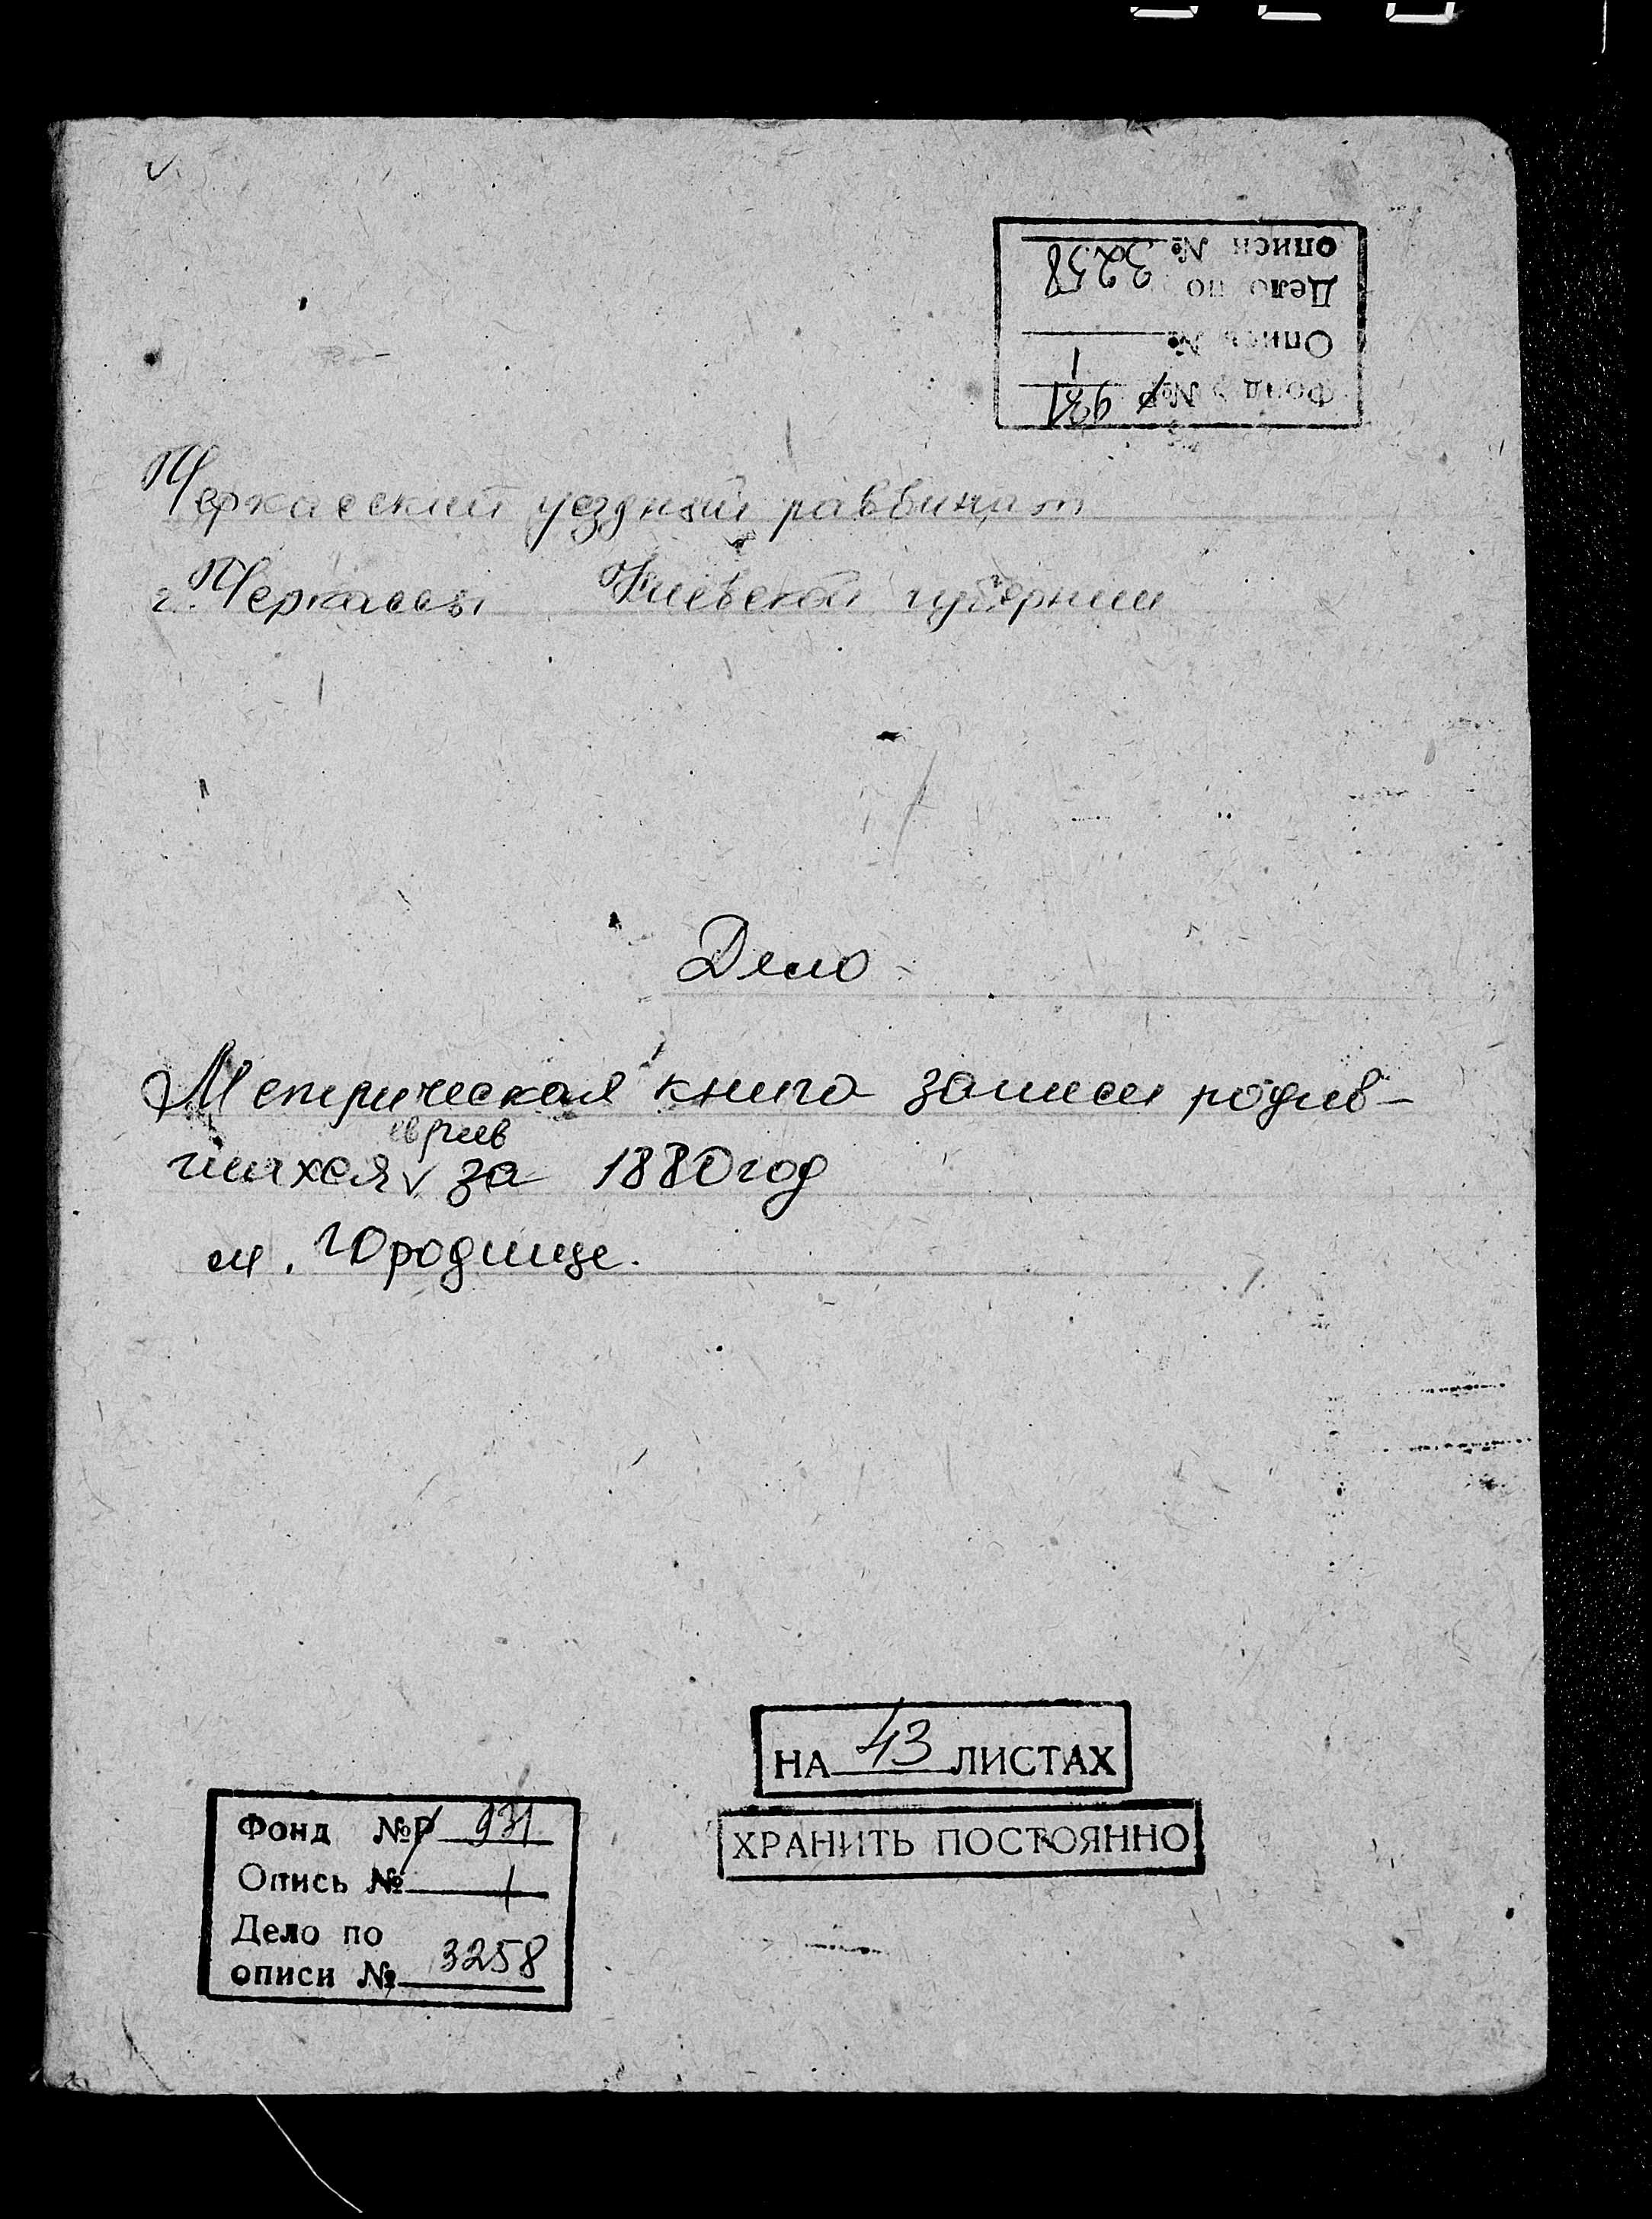 описи № 3258
Дело по
Опись № 1
Фонд № Р 931
Черкасский уездный раввинат
г. Черкассы Киевской губернии
Дело
Метрическая книга записи родив-
евреев
шихся v за 1880 год
м. Городище.
НА 43 ЛИСТАХ
ХРАНИТЬ ПОСТОЯННО
Фонд №Р 931
Опись № 1
Дело по
описи № 3258